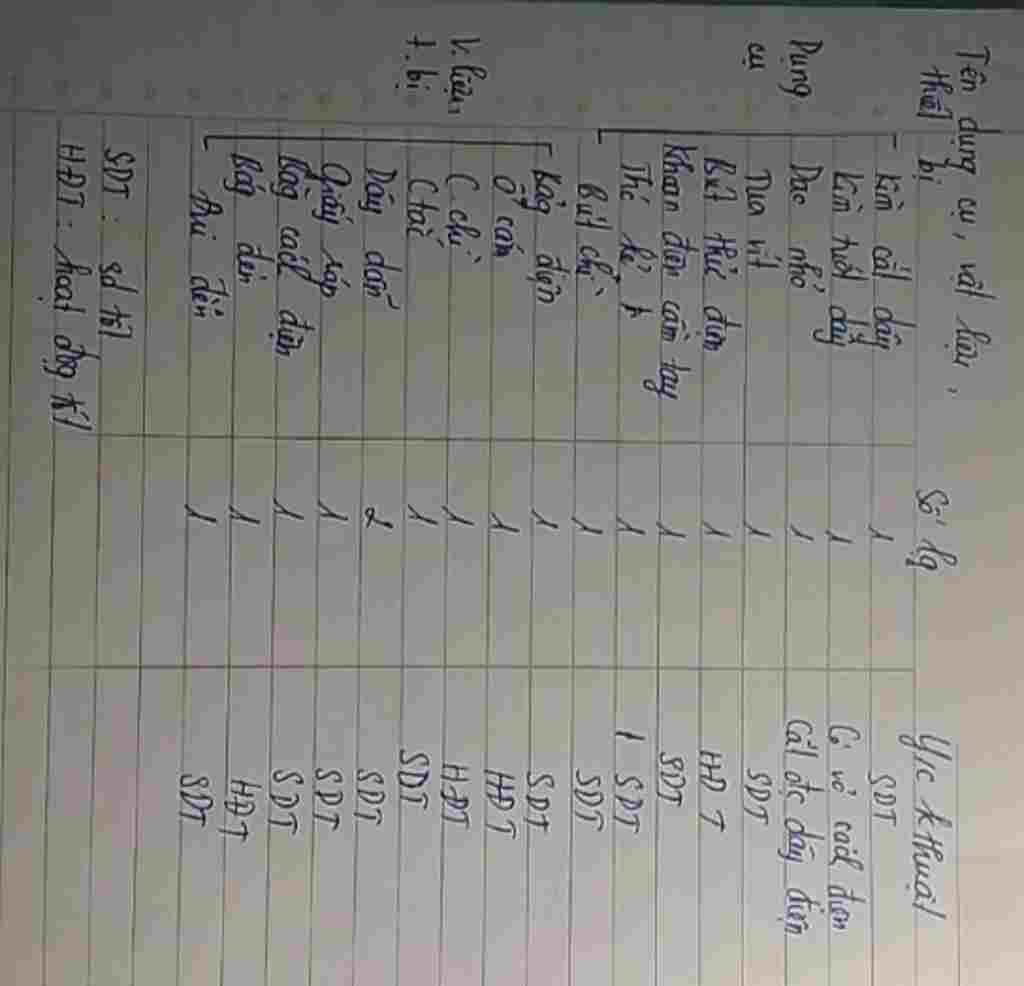 Tên dụng cụ, vật liệu, thiết bị | Số lg | Y/c k thuật
Dụng cụ
Kìm cắt dây | 1 | SDT
Kìm tuốt dây | 1 | Có vỏ cách điện
Dao nhỏ | 1 | Cắt đc dây điện
Tua vít | 1 | SDT
Bút thử điện | 1 | HĐT
Khoan điện cầm tay | 1 | SDT
Thc kẻ | 1 | SDT
Bút chì | 1 | SDT
V.liệu, t.bị
Bảng điện | 1 | SDT
Ổ cắm | 1 | HĐT
C chì | 1 | HĐT
C tắc | 1 | SDT
Dây dẫn | 2 | SDT
Giấy ráp | 1 | SDT
Băng cách điện | 1 | SDT
Bóng đèn | 1 | HĐT
Đui đèn | 1 | SDT
SDT: sd tốt
HĐT: hoạt đọg tốt